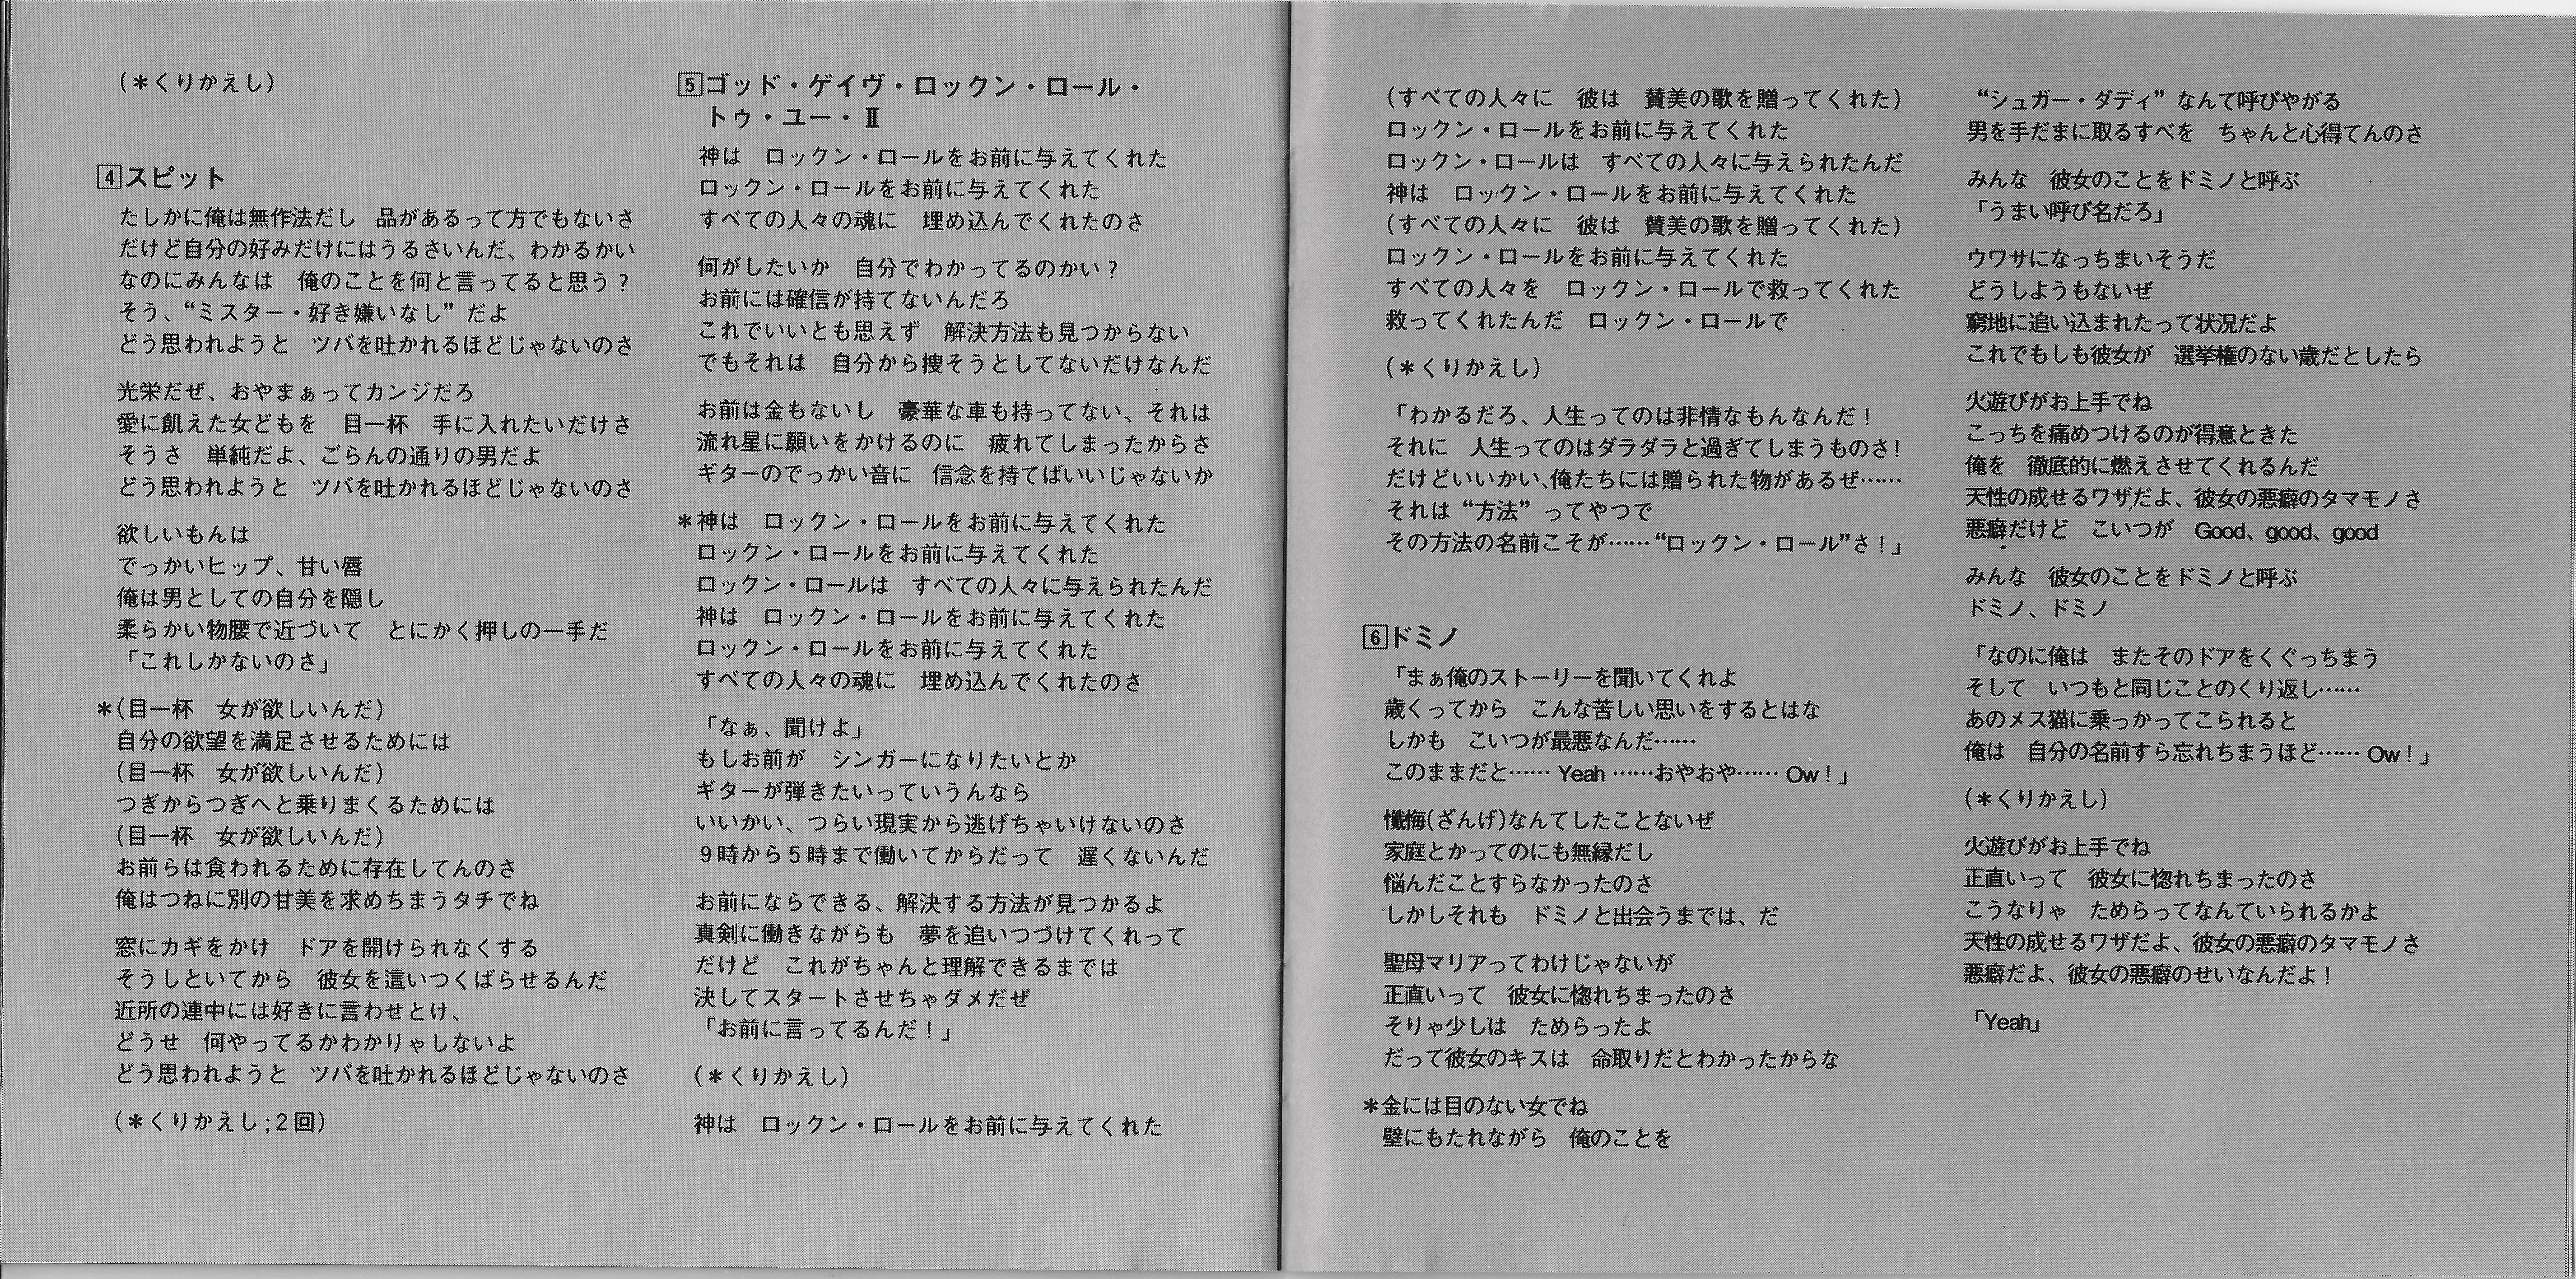 (＊くりかえし)
4 スピット
たしかに俺は無作法だし　品があるって方でもないさ
だけど自分の好みだけにはうるさいんだ、わかるかい
なのにみんなは　俺のことを何と言ってると思う？
そう、“ミスター・好き嫌いなし” だよ
どう思われようと　ツバを吐かれるほどじゃないのさ
光栄だぜ、おやまぁってカンジだろ
愛に飢えた女どもを　目一杯　手に入れたいだけさ
そうさ　単純だよ、ごらんの通りの男だよ
どう思われようと　ツバを吐かれるほどじゃないのさ
欲しいもんは
でっかいヒップ、甘い唇
俺は男としての自分を隠し
柔らかい物腰で近づいて　とにかく押しの一手だ
「これしかないのさ」
＊(目一杯　女が欲しいんだ)
自分の欲望を満足させるためには
(目一杯　女が欲しいんだ)
つぎからつぎへと乗りまくるためには
(目一杯　女が欲しいんだ)
お前らは食われるために存在してんのさ
俺はつねに別の甘美を求めちまうタチでね
窓にカギをかけ　ドアを開けられなくする
そうしといてから　彼女を這いつくばらせるんだ
近所の連中には好きに言わせとけ、
どうせ　何やってるかわかりゃしないよ
どう思われようと　ツバを吐かれるほどじゃないのさ
(＊くりかえし;2回)
5 ゴッド・ゲイヴ・ロックン・ロール・
トゥ・ユー・Ⅱ
神は　ロックン・ロールをお前に与えてくれた
ロックン・ロールをお前に与えてくれた
すべての人々の魂に　埋め込んでくれたのさ
何がしたいか　自分でわかってるのかい？
お前には確信が持てないんだろ
これでいいとも思えず　解決方法も見つからない
でもそれは　自分から捜そうとしてないだけなんだ
お前は金もないし　豪華な車も持ってない、それは
流れ星に願いをかけるのに　疲れてしまったからさ
ギターのでっかい音に　信念を持てばいいじゃないか
＊神は　ロックン・ロールをお前に与えてくれた
ロックン・ロールをお前に与えてくれた
ロックン・ロールは　すべての人々に与えられたんだ
神は　ロックン・ロールをお前に与えてくれた
ロックン・ロールをお前に与えてくれた
すべての人々の魂に　埋め込んでくれたのさ
「なぁ、聞けよ」
もしお前が　シンガーになりたいとか
ギターが弾きたいっていうんなら
いいかい、つらい現実から逃げちゃいけないのさ
9時から5時まで働いてからだって　遅くないんだ
お前にならできる、解決する方法が見つかるよ
真剣に働きながらも　夢を追いつづけてくれって
だけど　これがちゃんと理解できるまでは
決してスタートさせちゃダメだぜ
「お前に言ってるんだ！」
(＊くりかえし)
神は　ロックン・ロールをお前に与えてくれた
(すべての人々に　彼は　賛美の歌を贈ってくれた)
ロックン・ロールをお前に与えてくれた
ロックン・ロールは　すべての人々に与えられたんだ
神は　ロックン・ロールをお前に与えてくれた
(すべての人々に　彼は　賛美の歌を贈ってくれた)
ロックン・ロールをお前に与えてくれた
すべての人々を　ロックン・ロールで救ってくれた
救ってくれたんだ　ロックン・ロールで
(＊くりかえし)
「わかるだろ、人生ってのは非情なもんなんだ！
それに　人生ってのはダラダラと過ぎてしまうものさ！
だけどいいかい、俺たちには贈られた物があるぜ……
それは “方法” ってやつで
その方法の名前こそが……“ロックン・ロール”さ！」
6 ドミノ
「まぁ俺のストーリーを聞いてくれよ
歳くってから　こんな苦しい思いをするとはな
しかも　こいつが最悪なんだ……
このままだと…… Yeah ……おやおや…… Ow！」
懺悔(ざんげ)なんてしたことないぜ
家庭とかってのにも無縁だし
悩んだことすらなかったのさ
しかしそれも　ドミノと出会うまでは、だ
聖母マリアってわけじゃないが
正直いって　彼女に惚れちまったのさ
そりゃ少しは　ためらったよ
だって彼女のキスは　命取りだとわかったからな
＊金には目のない女でね
壁にもたれながら　俺のことを
“シュガー・ダディ” なんて呼びやがる
男を手だまに取るすべを　ちゃんと心得てんのさ
みんな　彼女のことをドミノと呼ぶ
「うまい呼び名だろ」
ウワサになっちまいそうだ
どうしようもないぜ
窮地に追い込まれたって状況だよ
これでもしも彼女が　選挙権のない歳だとしたら
火遊びがお上手でね
こっちを痛めつけるのが得意ときた
俺を　徹底的に燃えさせてくれるんだ
天性の成せるワザだよ、彼女の悪癖のタマモノさ
悪癖だけど　こいつが　Good、good、good
みんな　彼女のことをドミノと呼ぶ
ドミノ、ドミノ
「なのに俺は　またそのドアをくぐっちまう
そして　いつもと同じことのくり返し……
あのメス猫に乗っかってこられると
俺は　自分の名前すら忘れちまうほど…… Ow！」
(＊くりかえし)
火遊びがお上手でね
正直いって　彼女に惚れちまったのさ
こうなりゃ　ためらってなんていられるかよ
天性の成せるワザだよ、彼女の悪癖のタマモノさ
悪癖だよ、彼女の悪癖のせいなんだよ！
「Yeah」